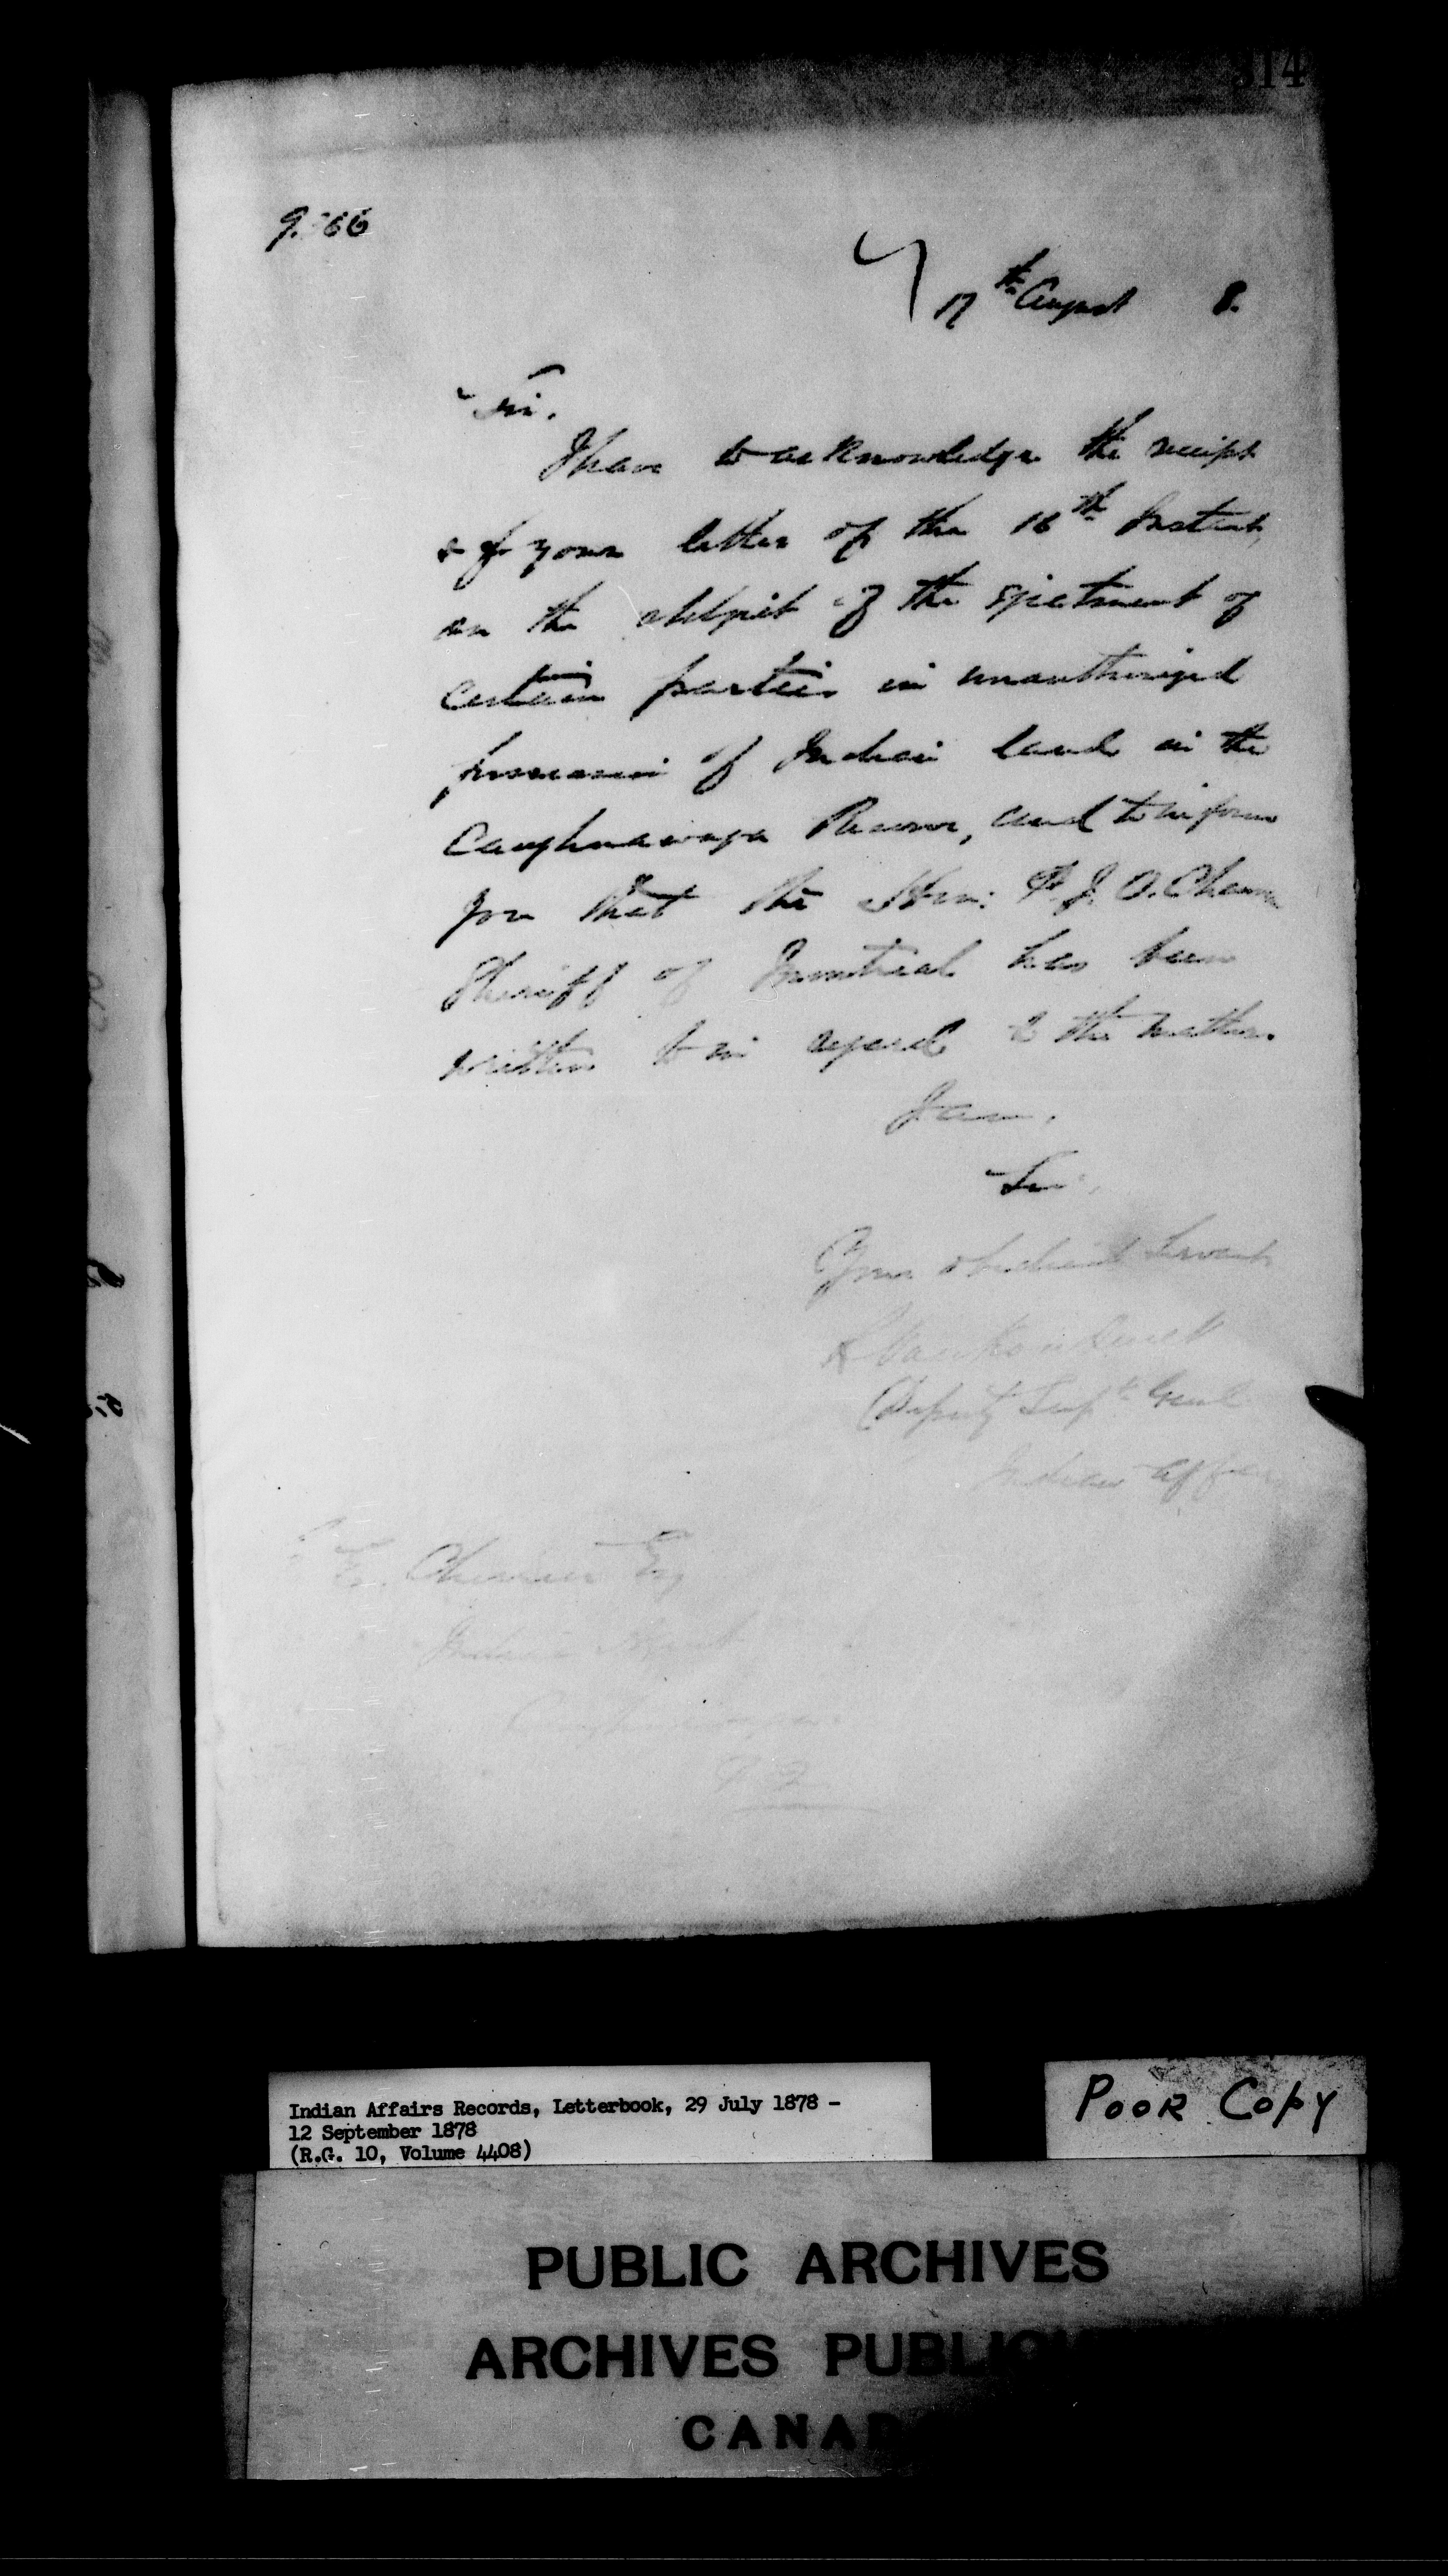 314
9.366
17th August 8.
Sir,
I have to acknowledge the receipt
of your letter of the 16th Instant,
on the subject of the Ejectment of
certain parties in unauthorized
possession of Indian land in the
Caughnawaga Reserve, and to inform
you that the Hon: P. J. O. Chauv
Sheriff of Montreal has been
written to in regard to the matter.
I am,
Sir,
Your obedient Servant
L VanKoughnett
Deputy Supt Genl
Indian Affairs
Esq
Indian Agent
Caughnawaga
P Q
Indian Affairs Records, Letterbook, 29 July 1878 -
12 September 1878
(R.G. 10, Volume 4408)
POOR COPY
PUBLIC ARCHIVES
ARCHIVES PUBLIQ
CANAD